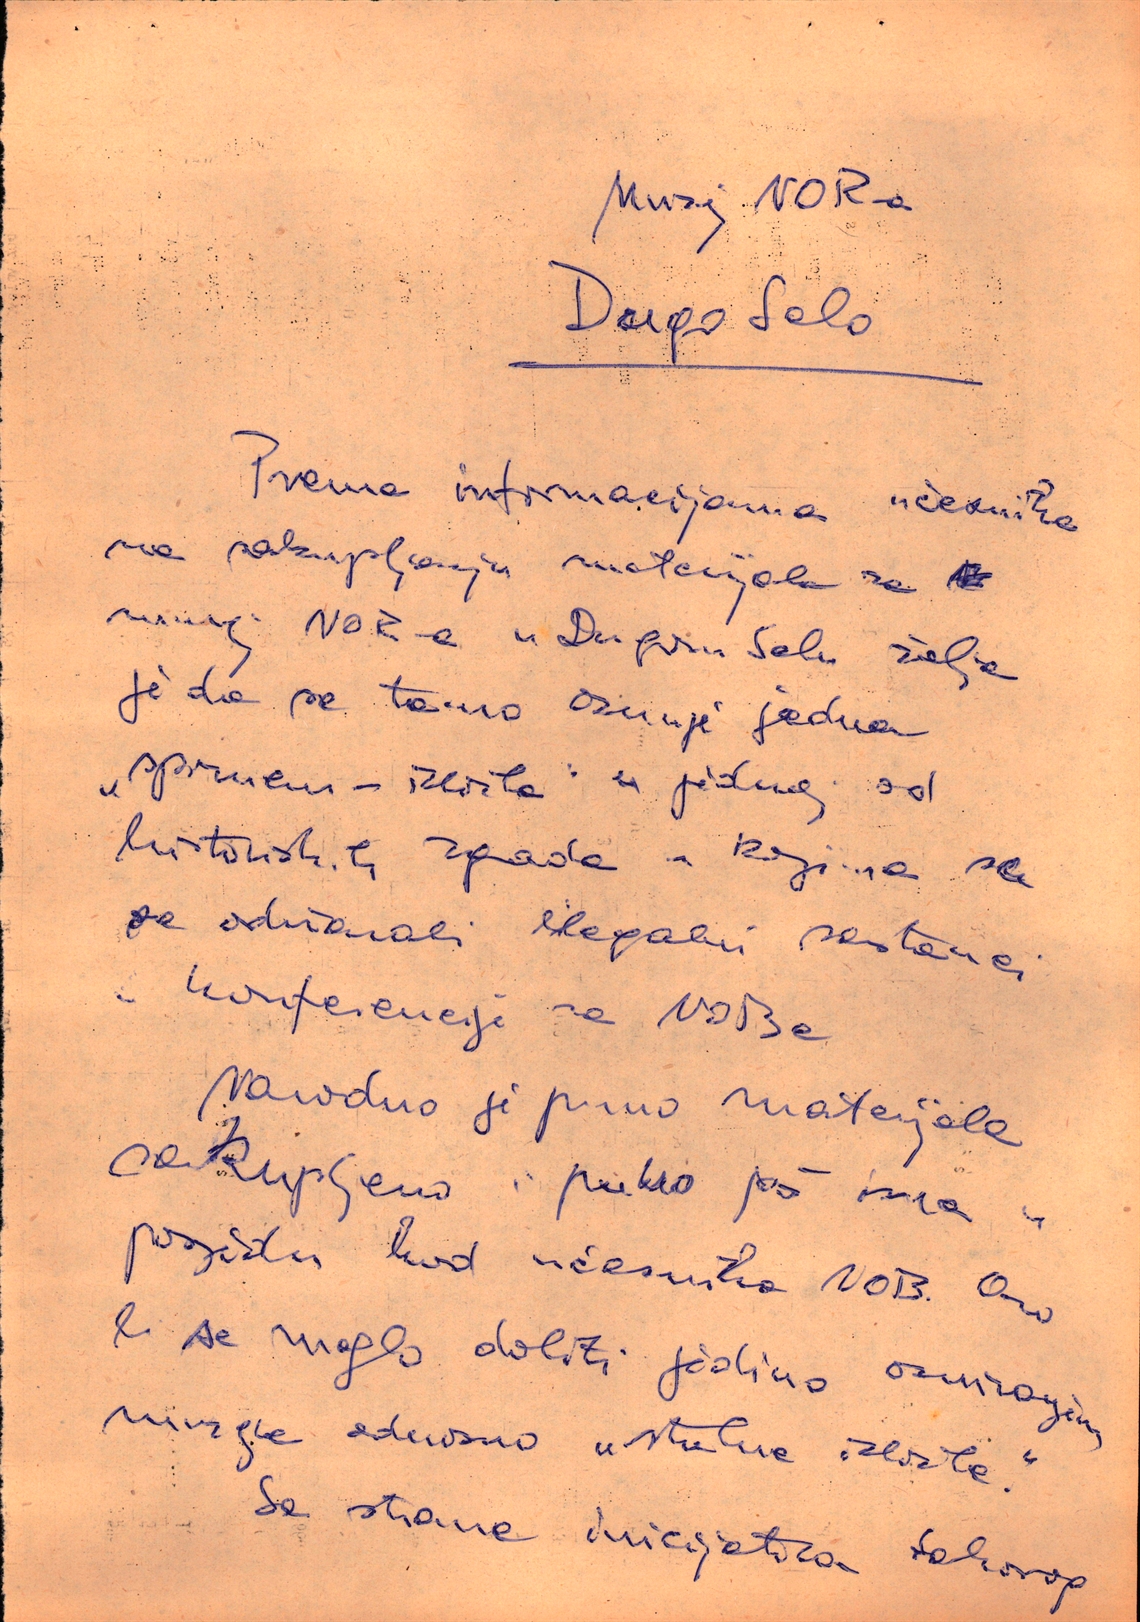 Muzej NOR-a
Dugo Selo
Prema informacijama učesnika
na sakupljanju materijala za
muzej NOR-a u Dugom Selu želja
je da se tamo osnuje jedna
„spomen-izložba" u jednoj od
historijskih zgrada u kojima su
se održavali ilegalni sastanci
i konferencije za NOBe
Navodno je puno materijala
sakupljeno i puno još ima u
posjedu kod učesnika NOB. Ono
bi se moglo dobiti jedino osnivanjem
muzeja odnosno „stalne izložbe."
Sa strane inicijatora